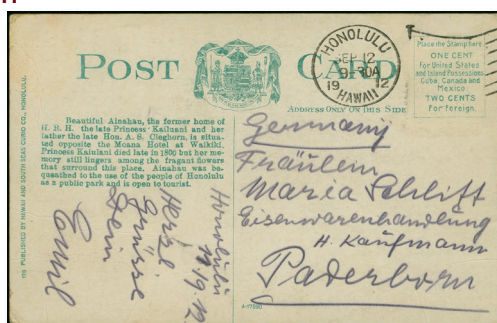 POST CARD
HONOLULU
SEP 12
9:30A
19 12
HAWAII
T.
Place the Stamp here
ONE CENT
For United States
and Island Possessions
Cuba, Canada and
Mexico
TWO CENTS
For Foreign.
ADDRESS ONLY ON THIS SIDE
Beautiful Ainahau, the former home of
H. R. H. the late Princess Kaiulani and her
father the late Hon. A. S. Cleghorn, is situa-
ted opposite the Moana Hotel at Waikiki,
Princess Kaiulani died late in 1800 but her me-
mory still lingers among the fragant flowers
that surround this place. Ainahau was be-
queathed to the use of the people of Honolulu
as a public park and is open to tourist.
115 PUBLISHED BY HAWAII AND SOUTH SEAS CURIO CO., HONOLULU.
Honolulu
11/9.12.
Herzl.
Grüsse
Dein
Emil
Germany
Fräulein
Maria Schlift
Eisenwarenhandlung
H. Kaufmann
Paderborn